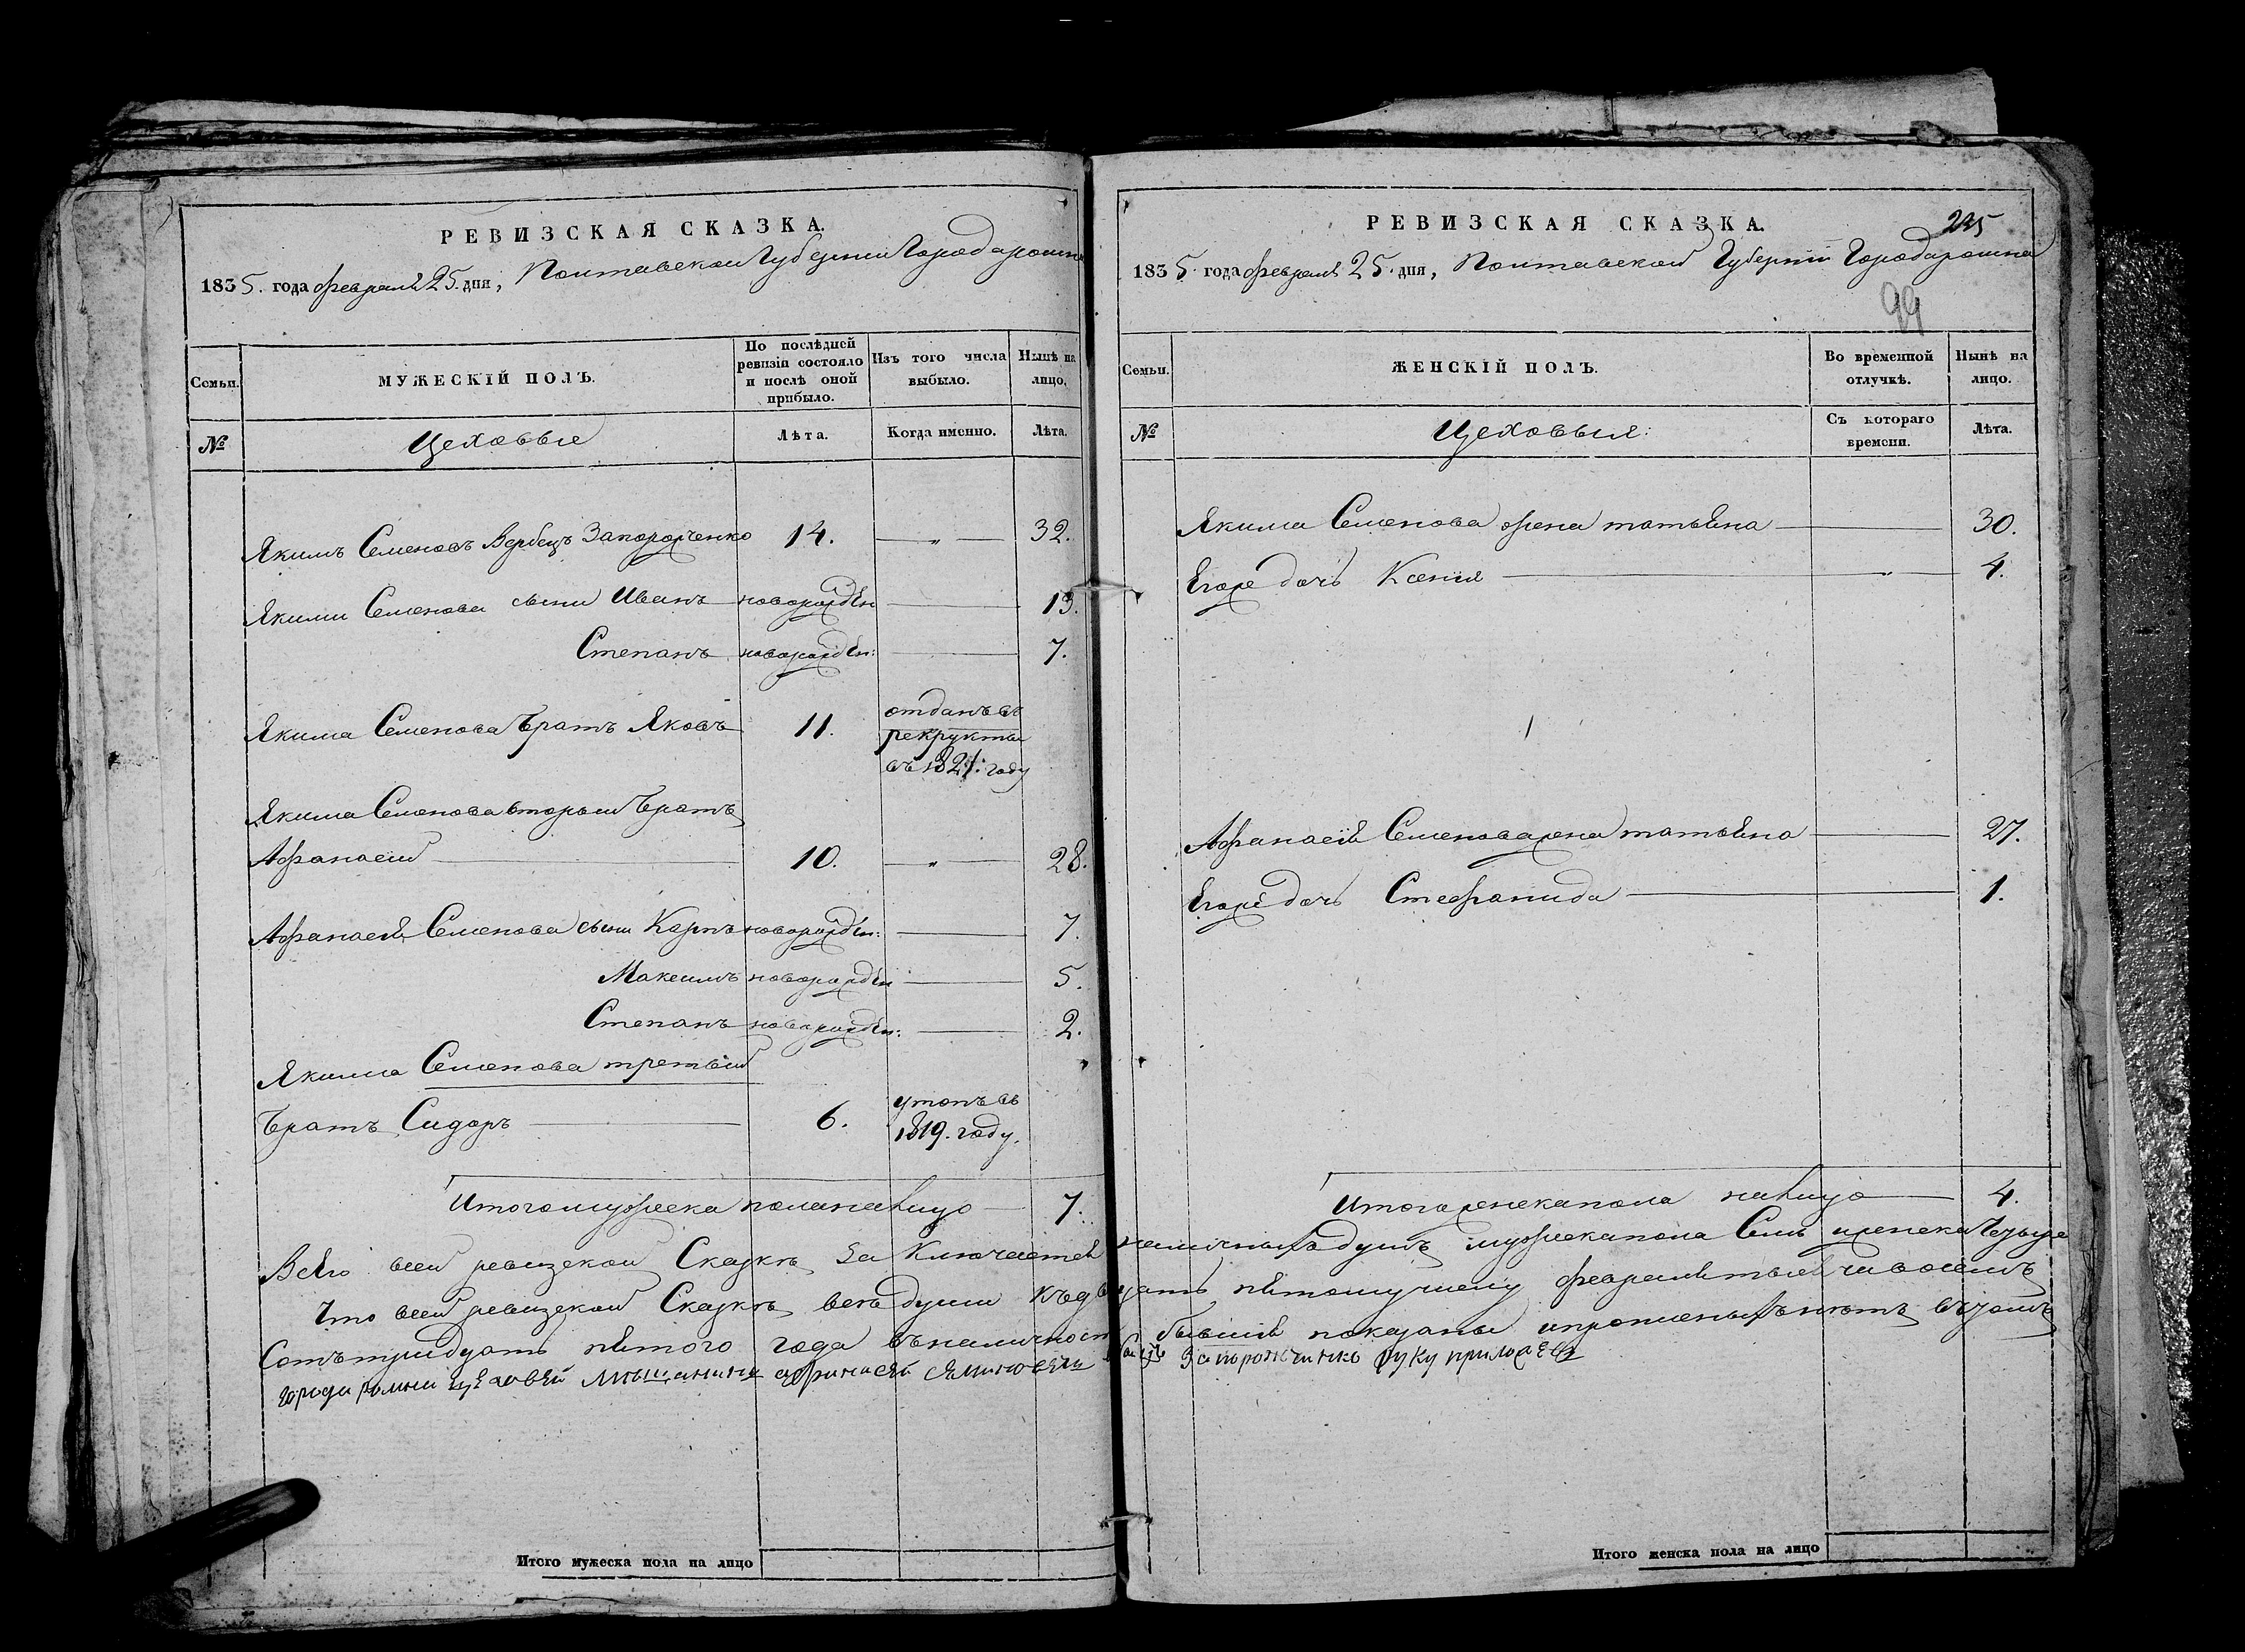 РЕВИЗСКАЯ СКАЗКА.
1835. года февраля 25. дня, Полтавской Губернии Города ромна
Семьи.
МУЖЕСКІЙ ПОЛЪ.
По послѣдней ревизіи состояло и послѣ оной прибыло.
Изъ того числа выбыло.
Нынѣ на лицо.
№
Цеховые
Лѣта.
Когда именно.
Лѣта.
Якимъ Семеновъ Вербецъ Запорожченко 14. — „ — 32.
Якима Семенова сыни Иванъ новорожден 13.
Степанъ новорожден: 7.
Якима Семенова братъ Яковъ 11. отданъ въ
рекруты
въ 1821: году
Якима Семенова вторый братъ
Афанасий 10. — „ — 28.
Афанасия Семенова сыни Карпъ новорожден: 7.
Максимъ новорожден 5.
Степанъ новорожден: 2.
Якима Семенова третьий
братъ Сидоръ 6. утопъ въ
1819. году.
Итого мужеска пола налицо 7.
РЕВИЗСКАЯ СКАЗКА.
1835. года февраля 25. дня, Полтавской Губерніи Города ромна
99
Семьи.
ЖЕНСКІЙ ПОЛЪ.
Во временной отлучкѣ.
Нынѣ на лицо.
№
Цеховыя:
Съ котораго времени.
Лѣта.
Якима Семенова жена татьяна 30.
Егоже дочь Ксенія „ 4.
Афанасія Семенова жена татьяна 27.
Егоже дочь Стефанида 1.
Итого женска пола налицо 4.
Всего всей ревизской Сказкѣ заключается наличныхъ душъ мужеска пола Семь иженска Чтыре
Что всей ревизской Сказкѣ всѣ души къ двацать пятому числу февраля тысяча восемъ
Сотъ тридцать пятого года въ наличност бывшія показаны ипрописныхъ нѣтъ втомъ
города ромна цеховей мѣщанинъ афанасей Запорожченко руку приложев
Итого мужеска пола на лицо
Итого женска пола на лицо